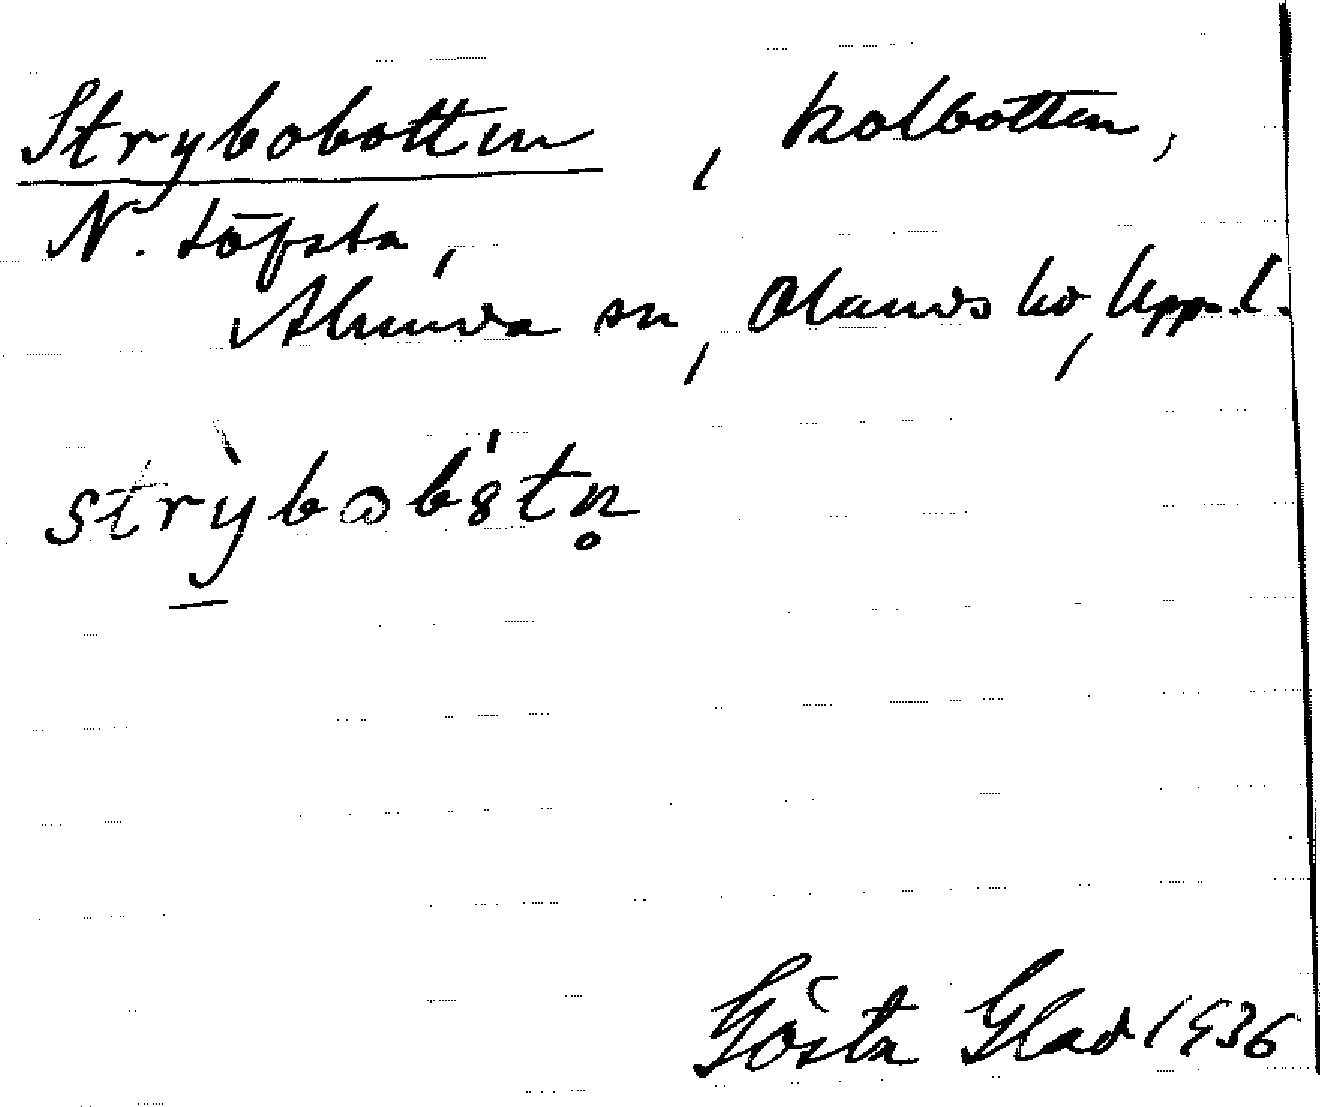 Strybobotten, kolbotten,
N. Löfsta,
Alunda sn, Olands hd, Uppl.
strỳbobòtn̥
Gösta Glad 1936